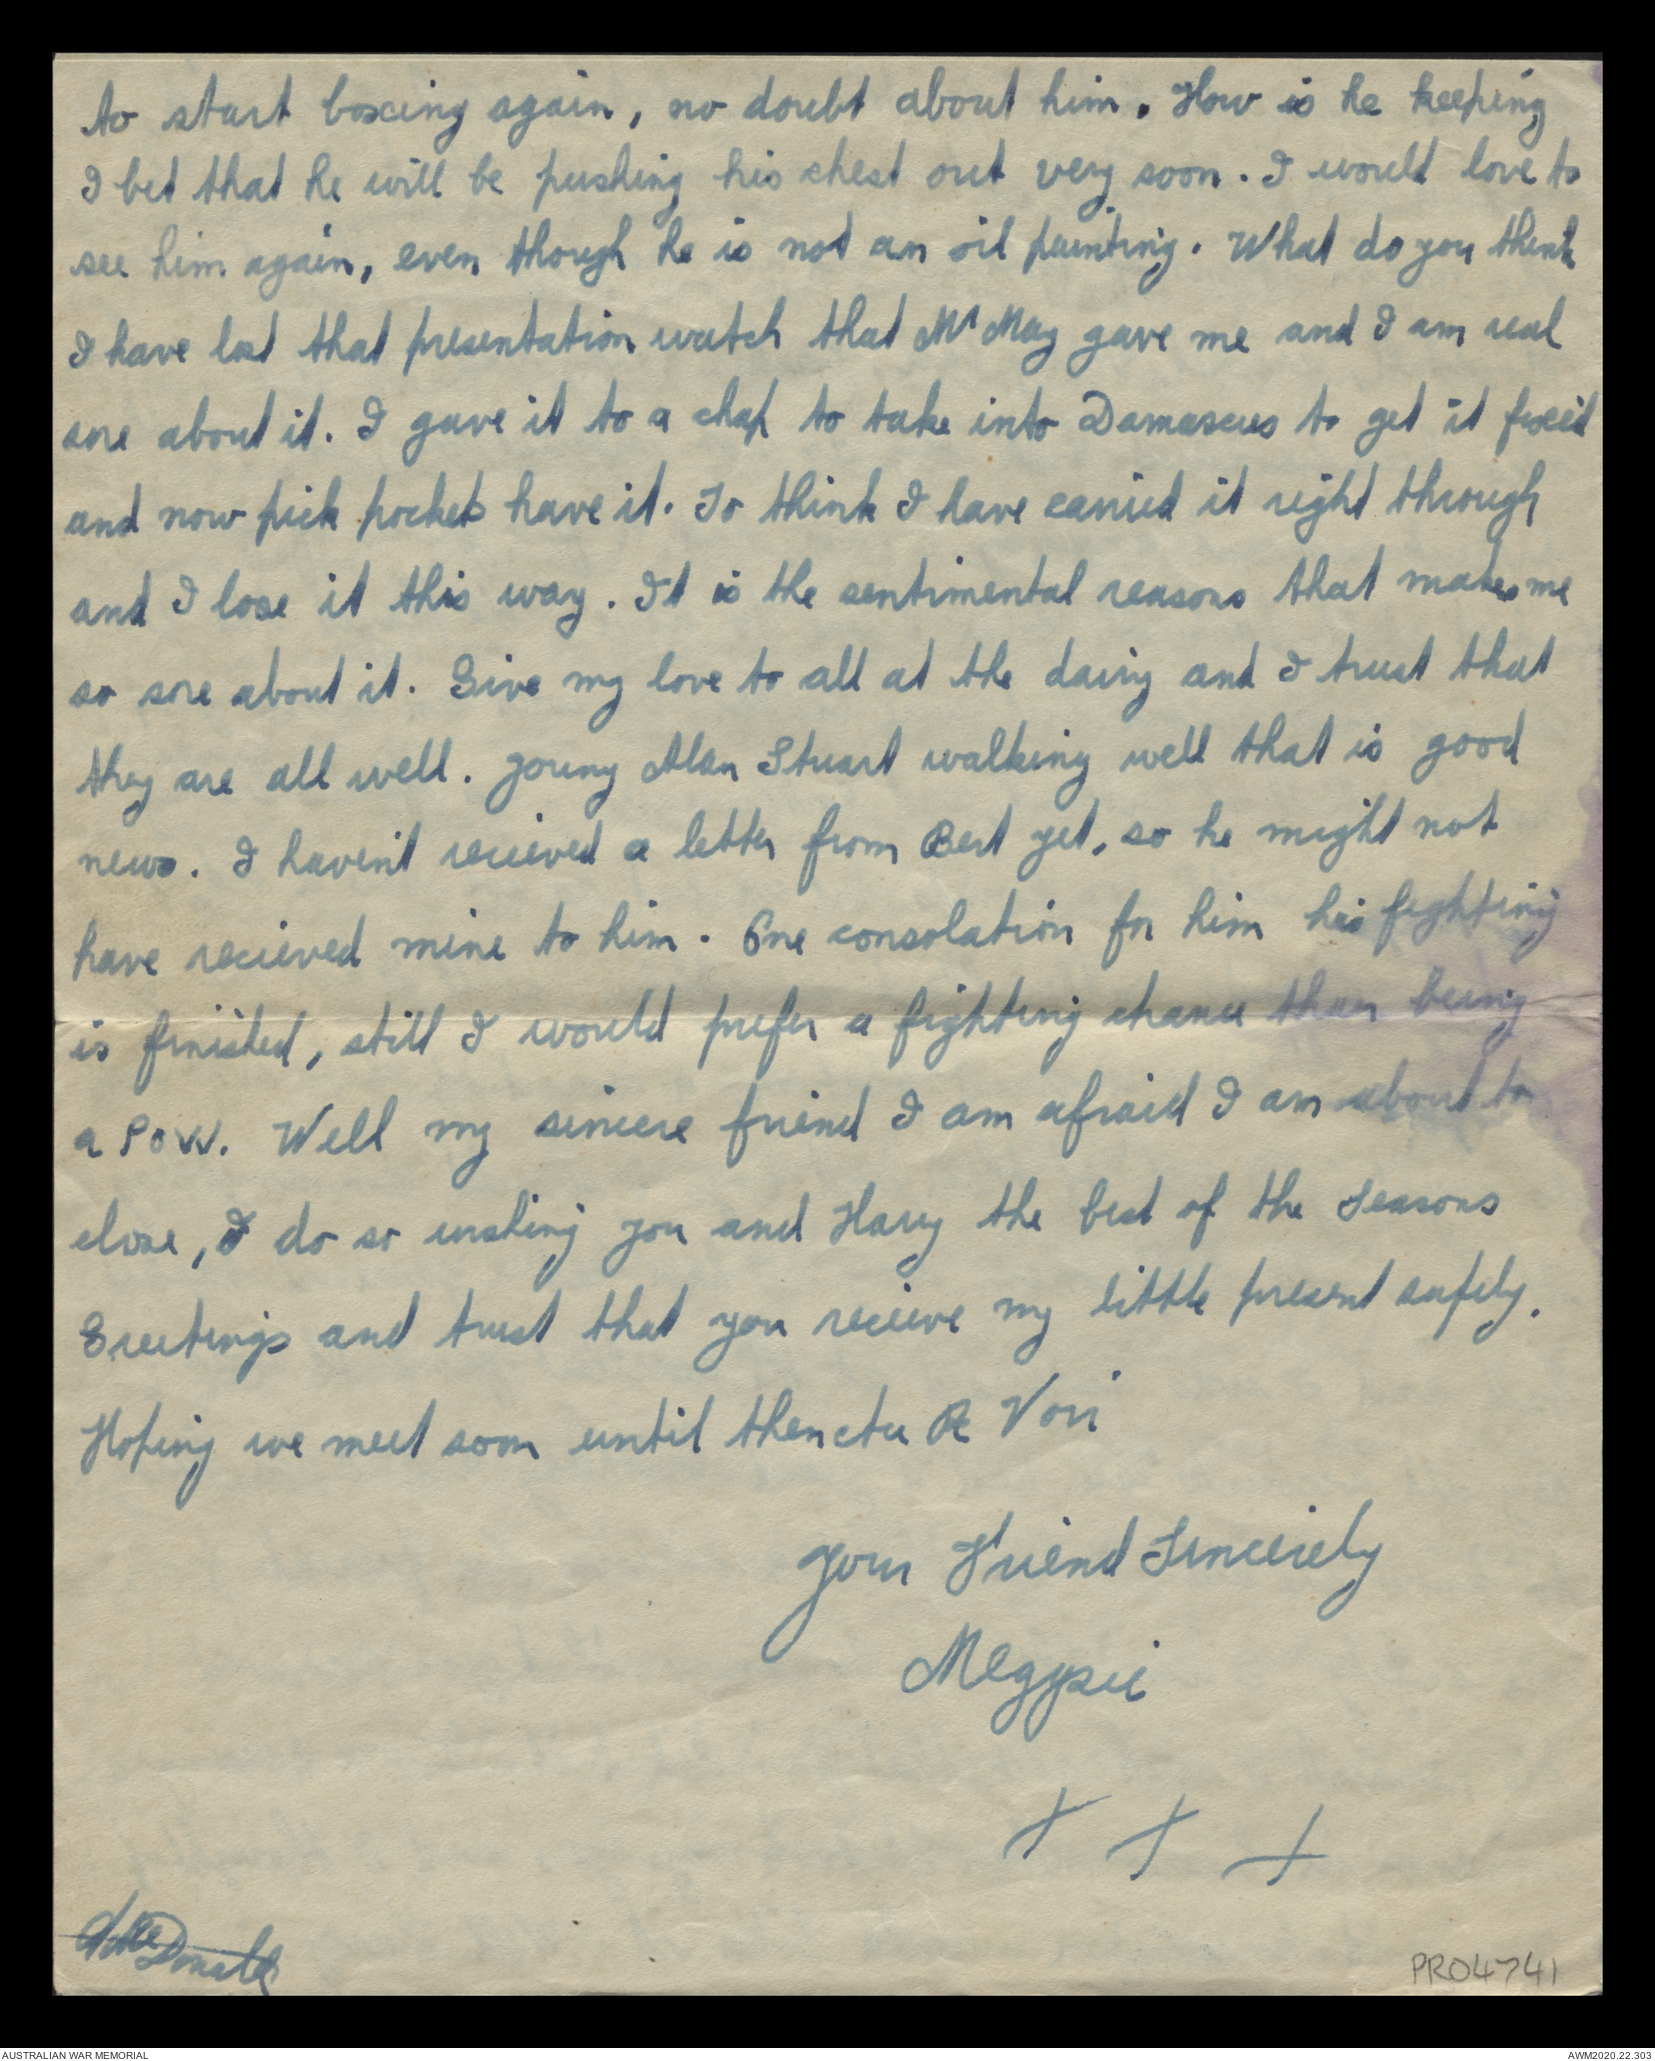 to start boxing again, no doubt about him. How is he keeping
I bet that he will be pushing his chest out very soon. I would love to
see him again, even though he is not an oil painting. What do you think
I have lost that presentation watch that Mr May gave me and I am real
sore about it. I gave it to a chap to take into Damascus to get it fixed
and now pick pockets have it. To think I have carried it right through
and I lose it this way. It is the sentimental reasons that makes me
so sore about it. Give my love to all at the dairy and I trust that
they are all well. Young Alan Stuart walking well that is good
news. I haven't recieved a letter from Bert yet, so he might not
have recieved mine to him. One consolation for him his fighting
is finished, still I would prefer a fighting chance than being
a POW. Well my sincere friend I am afraid I am about to
close, I do so wishing you and Harry the best of the Seasons
Greetings and trust that you recieve my little present safely.
Hoping we meet soon until then Au Re Voir
Your Friend Sincerely
Megpsie
X X X
McDonald
PR04741
AUSTRALIAN WAR MEMORIAL
AWM2020.22.303